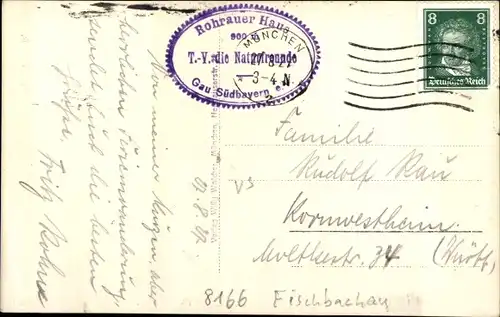 Rohrauer Haus
900 m
T.-V. die Naturfreunde
Gau Südbayern e.V.
MÜNCHEN
27.8.27
3-4 N
8 8
Deutsches Reich
Von meiner kurzen, aber
herrlichen Ferienwanderung
sendet Euch die besten
Grüße Fritz
27.8.27.
Familie
Rudolf Rau
Kornwestheim
Moltkestr. 34 (Württ.)
8166 Fischbachau